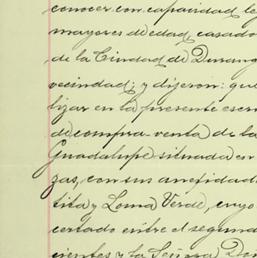 conocer con capacidad le
mayores de edad, casado
de la Ciudad de Durang
vecindad; y dijeron: que
lizar en la presente escri
de compra-venta de la
Guadalupe situada en
zas, con sus anexidad
tita y Loma Verde, cuyo
certado entre el segund
cientes y la Señora Do